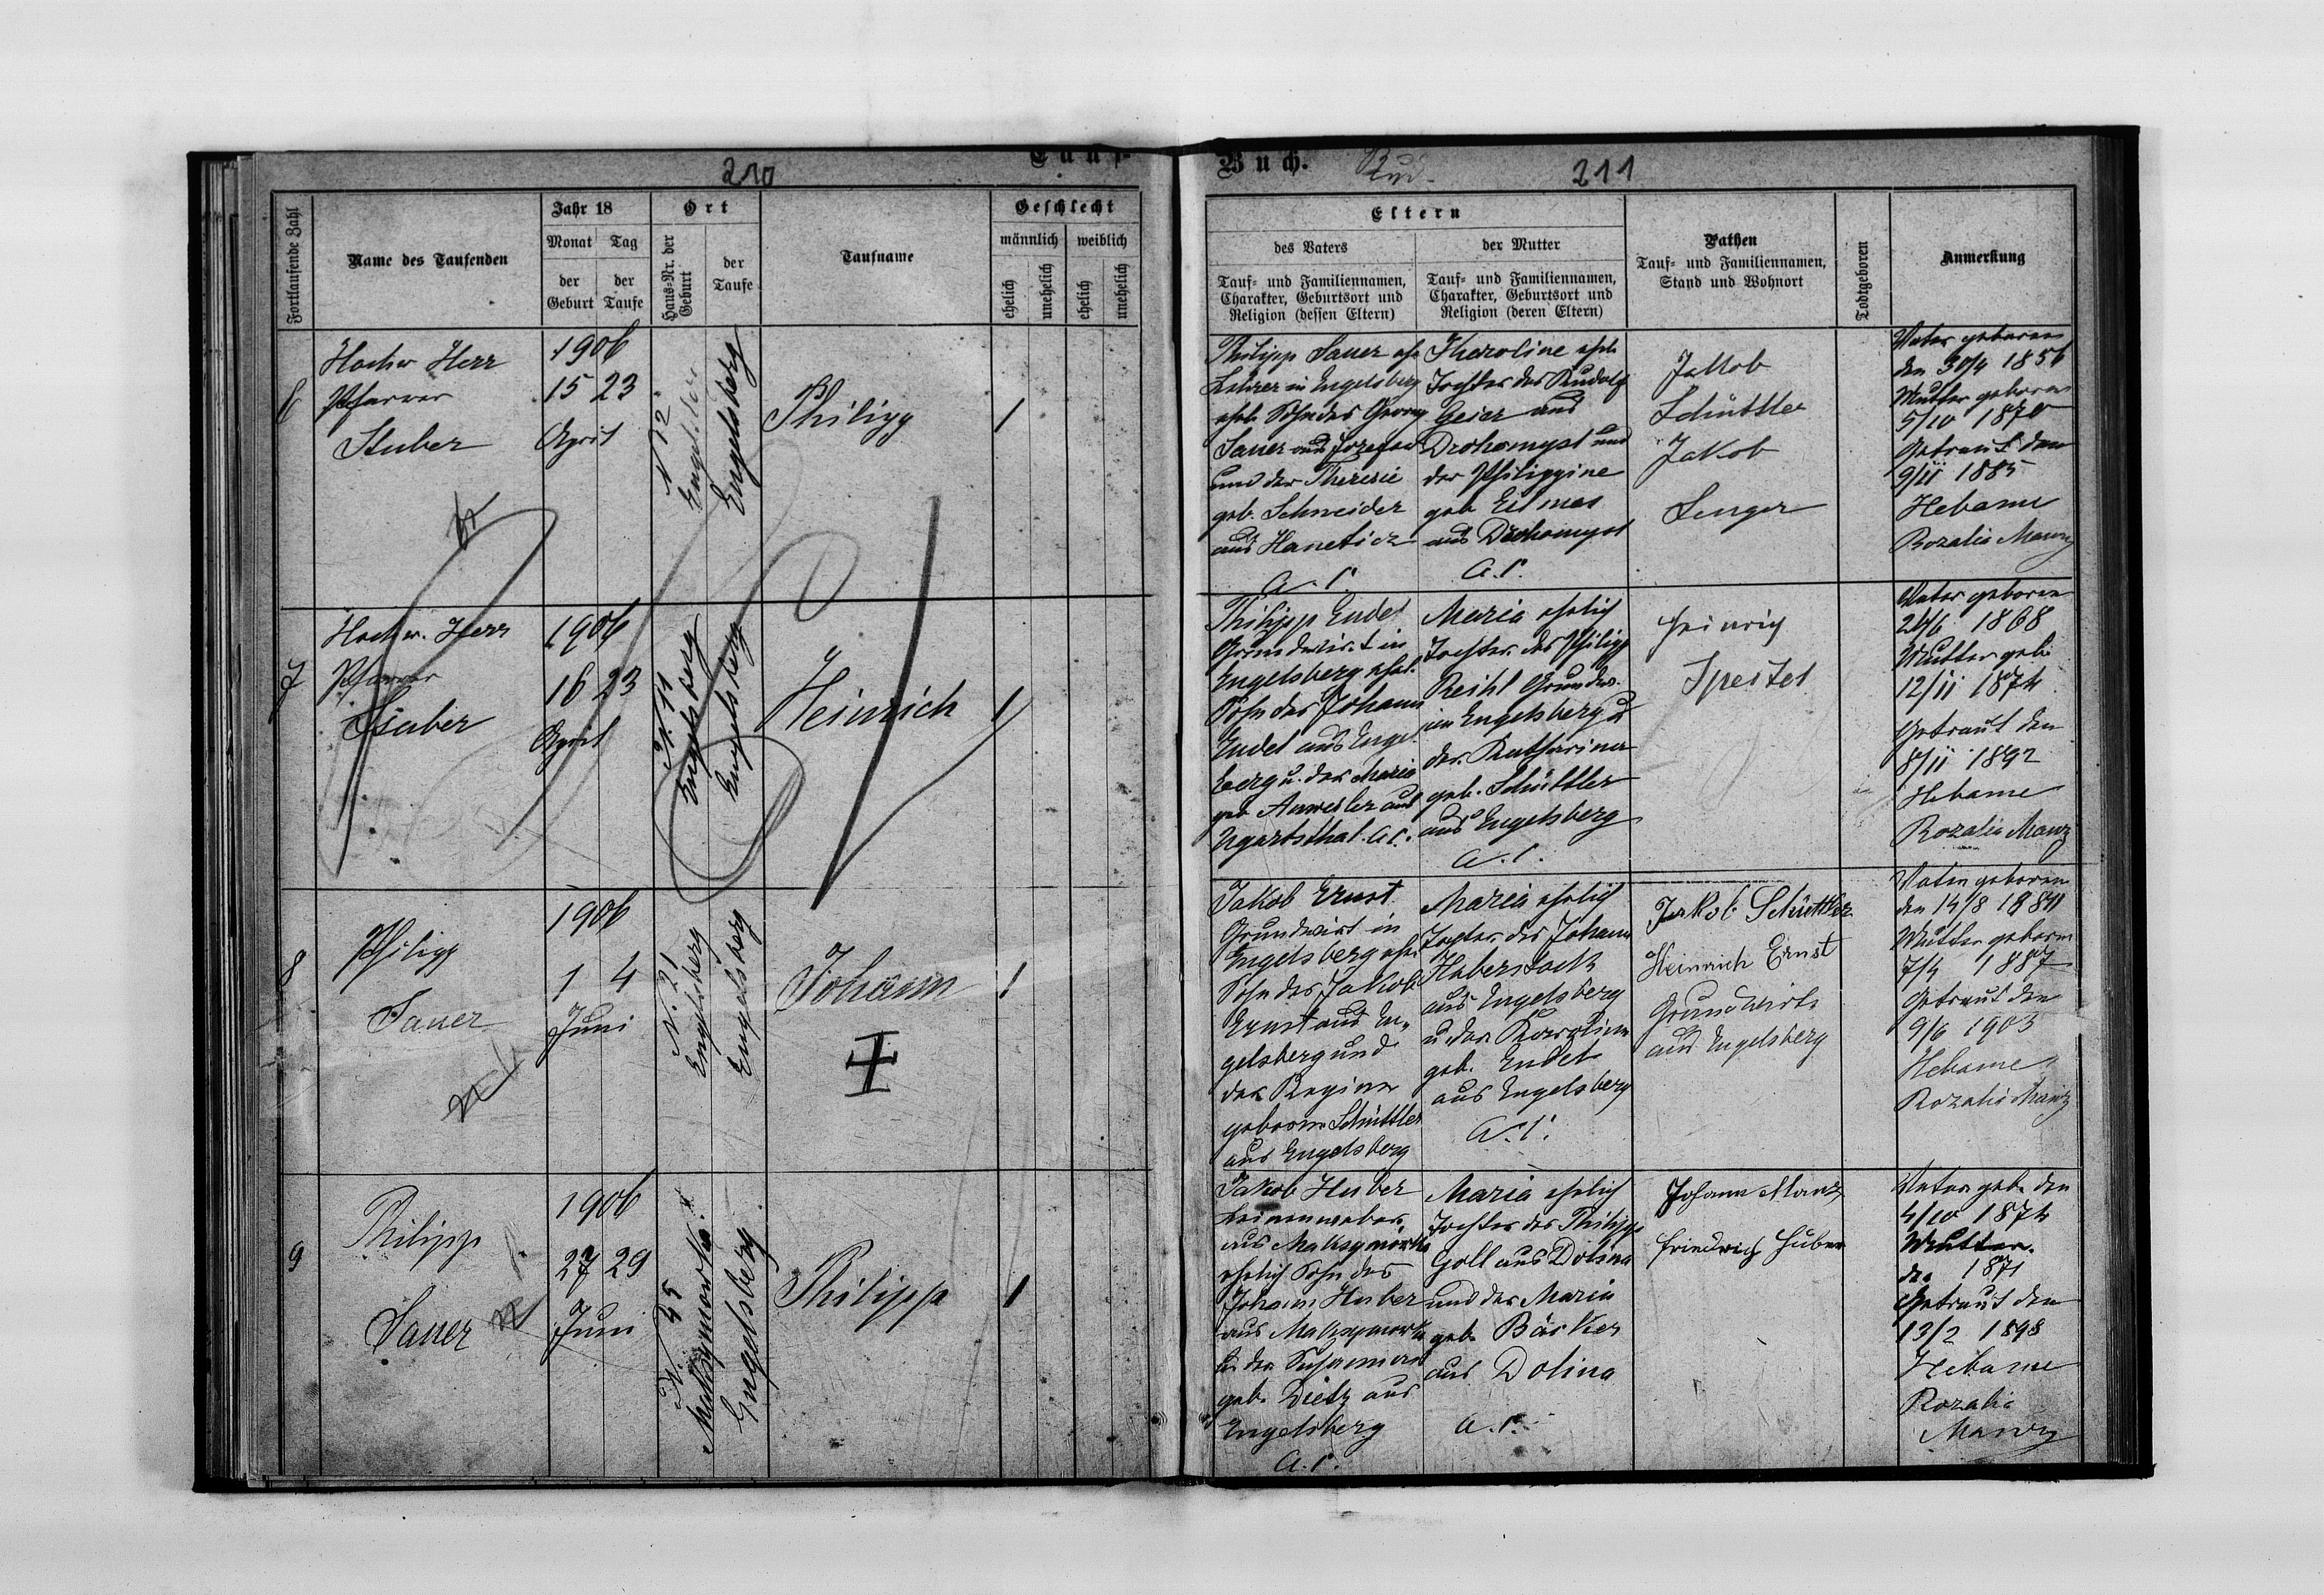 210
Tauf-
Fortlaufende Zahl
Name des Taufenden
Jahr 18
Monat Tag
der der
Geburt Taufe
Ort
Haus-Nr. der Geburt
der
Taufe
Taufname
Geschlecht
männlich weiblich
ehelich unehelich ehelich unehelich
6
Hochw Herr
Pfarrer
Stuber
1906
15 23
April
N 12
Engelsberg
Philipp
1
7
Hochw. Herr
Pfarrer
Stuber
1906
16 23
April
N. 11
Engelsberg
Engelsberg
Heinrich
1
8
Philipp
Sauer
1906
1 4
Juni
N. 21
Engelsberg
Engelsberg
Johann
1
9
Philipp
Sauer
1906
27 29
Juni
N. 45
Maksymowka
Engelsberg
Philipp
1
Buch.
211
Eltern
des Vaters
Tauf- und Familiennamen,
Charakter, Geburtsort und
Religion (dessen Eltern)
der Mutter
Tauf- und Familiennamen,
Charakter, Geburtsort und
Religion (deren Eltern)
Pathen
Tauf- und Familiennamen,
Stand und Wohnort
Todtgeboren
Anmerkung
Philipp Sauer
Lehrer in Engelsberg
ehel. Sohn des Georg
Sauer aus Josefow
und der Theresie
geb. Schneider
aus
A. C.
ehel.
Tochter des Rudolf
Geier aus
Drohomysl und
der Philippine
geb.
aus Drohomysl
A. C.
Jakob
Schüttler
Jakob
Senger
Vater geboren
den 30/4 1856
Mutter geboren
5/10 1870
Getraut den
9/11 1885
Hebame
Rozalia Manz
Philipp Endel
Grundwirt in
Engelsberg ehel.
Sohn des Johann
Endel aus Engels
berg u. der Maria
geb.
Ugartsthal. A. C.
Maria ehelich
Tochter des Philipp
Reihl Grundw.
in Engelsberg u
der Katharina
geb. Schüttler
aus Engelsberg
A. C.
Heinrich
Speitel
Vater geboren
24/6 1868
Mutter geb.
12/11 1874
Getraut den
8/11 1892
Hebame
Rozalia Manz
Jakob Ernst
Grundwirt in
Engelsberg ehe
Sohn des Jakob
Ernst aus En-
gelsberg und
der Regina
geborene Schüttler
aus Engelsberg
Maria ehelich
Tochter des Johann
Haberstock
aus Engelsberg
u. der Karolina
geb. Endel
aus Engelsberg
A. C.
Jakob Schüttler
Heinrich Ernst
Grundwirte
aus Engelsberg
Vater geboren
den 14/8
Mutter geboren
7/4 1887
Getraut den
9/6 1903
Hebame
Rozalia Manz
Jakob Huber
Leinenweber
aus Maksymowka
ehelich Sohn des
Johann Huber
aus Maksymowka
u. der Susanna
geb. Dietz aus
Engelsberg
A. C.
Maria ehelich
Tochter des Philipp
Goll aus Dolina
und der Maria
geb. Bäcker
aus Dolina
A. C.
Johann Manz
Friedrich Huber
Vater geb. den
4/10 1874
Mutter
den 1871
Getraut den
13/2 1898
Hebame
Rozalia
Manz